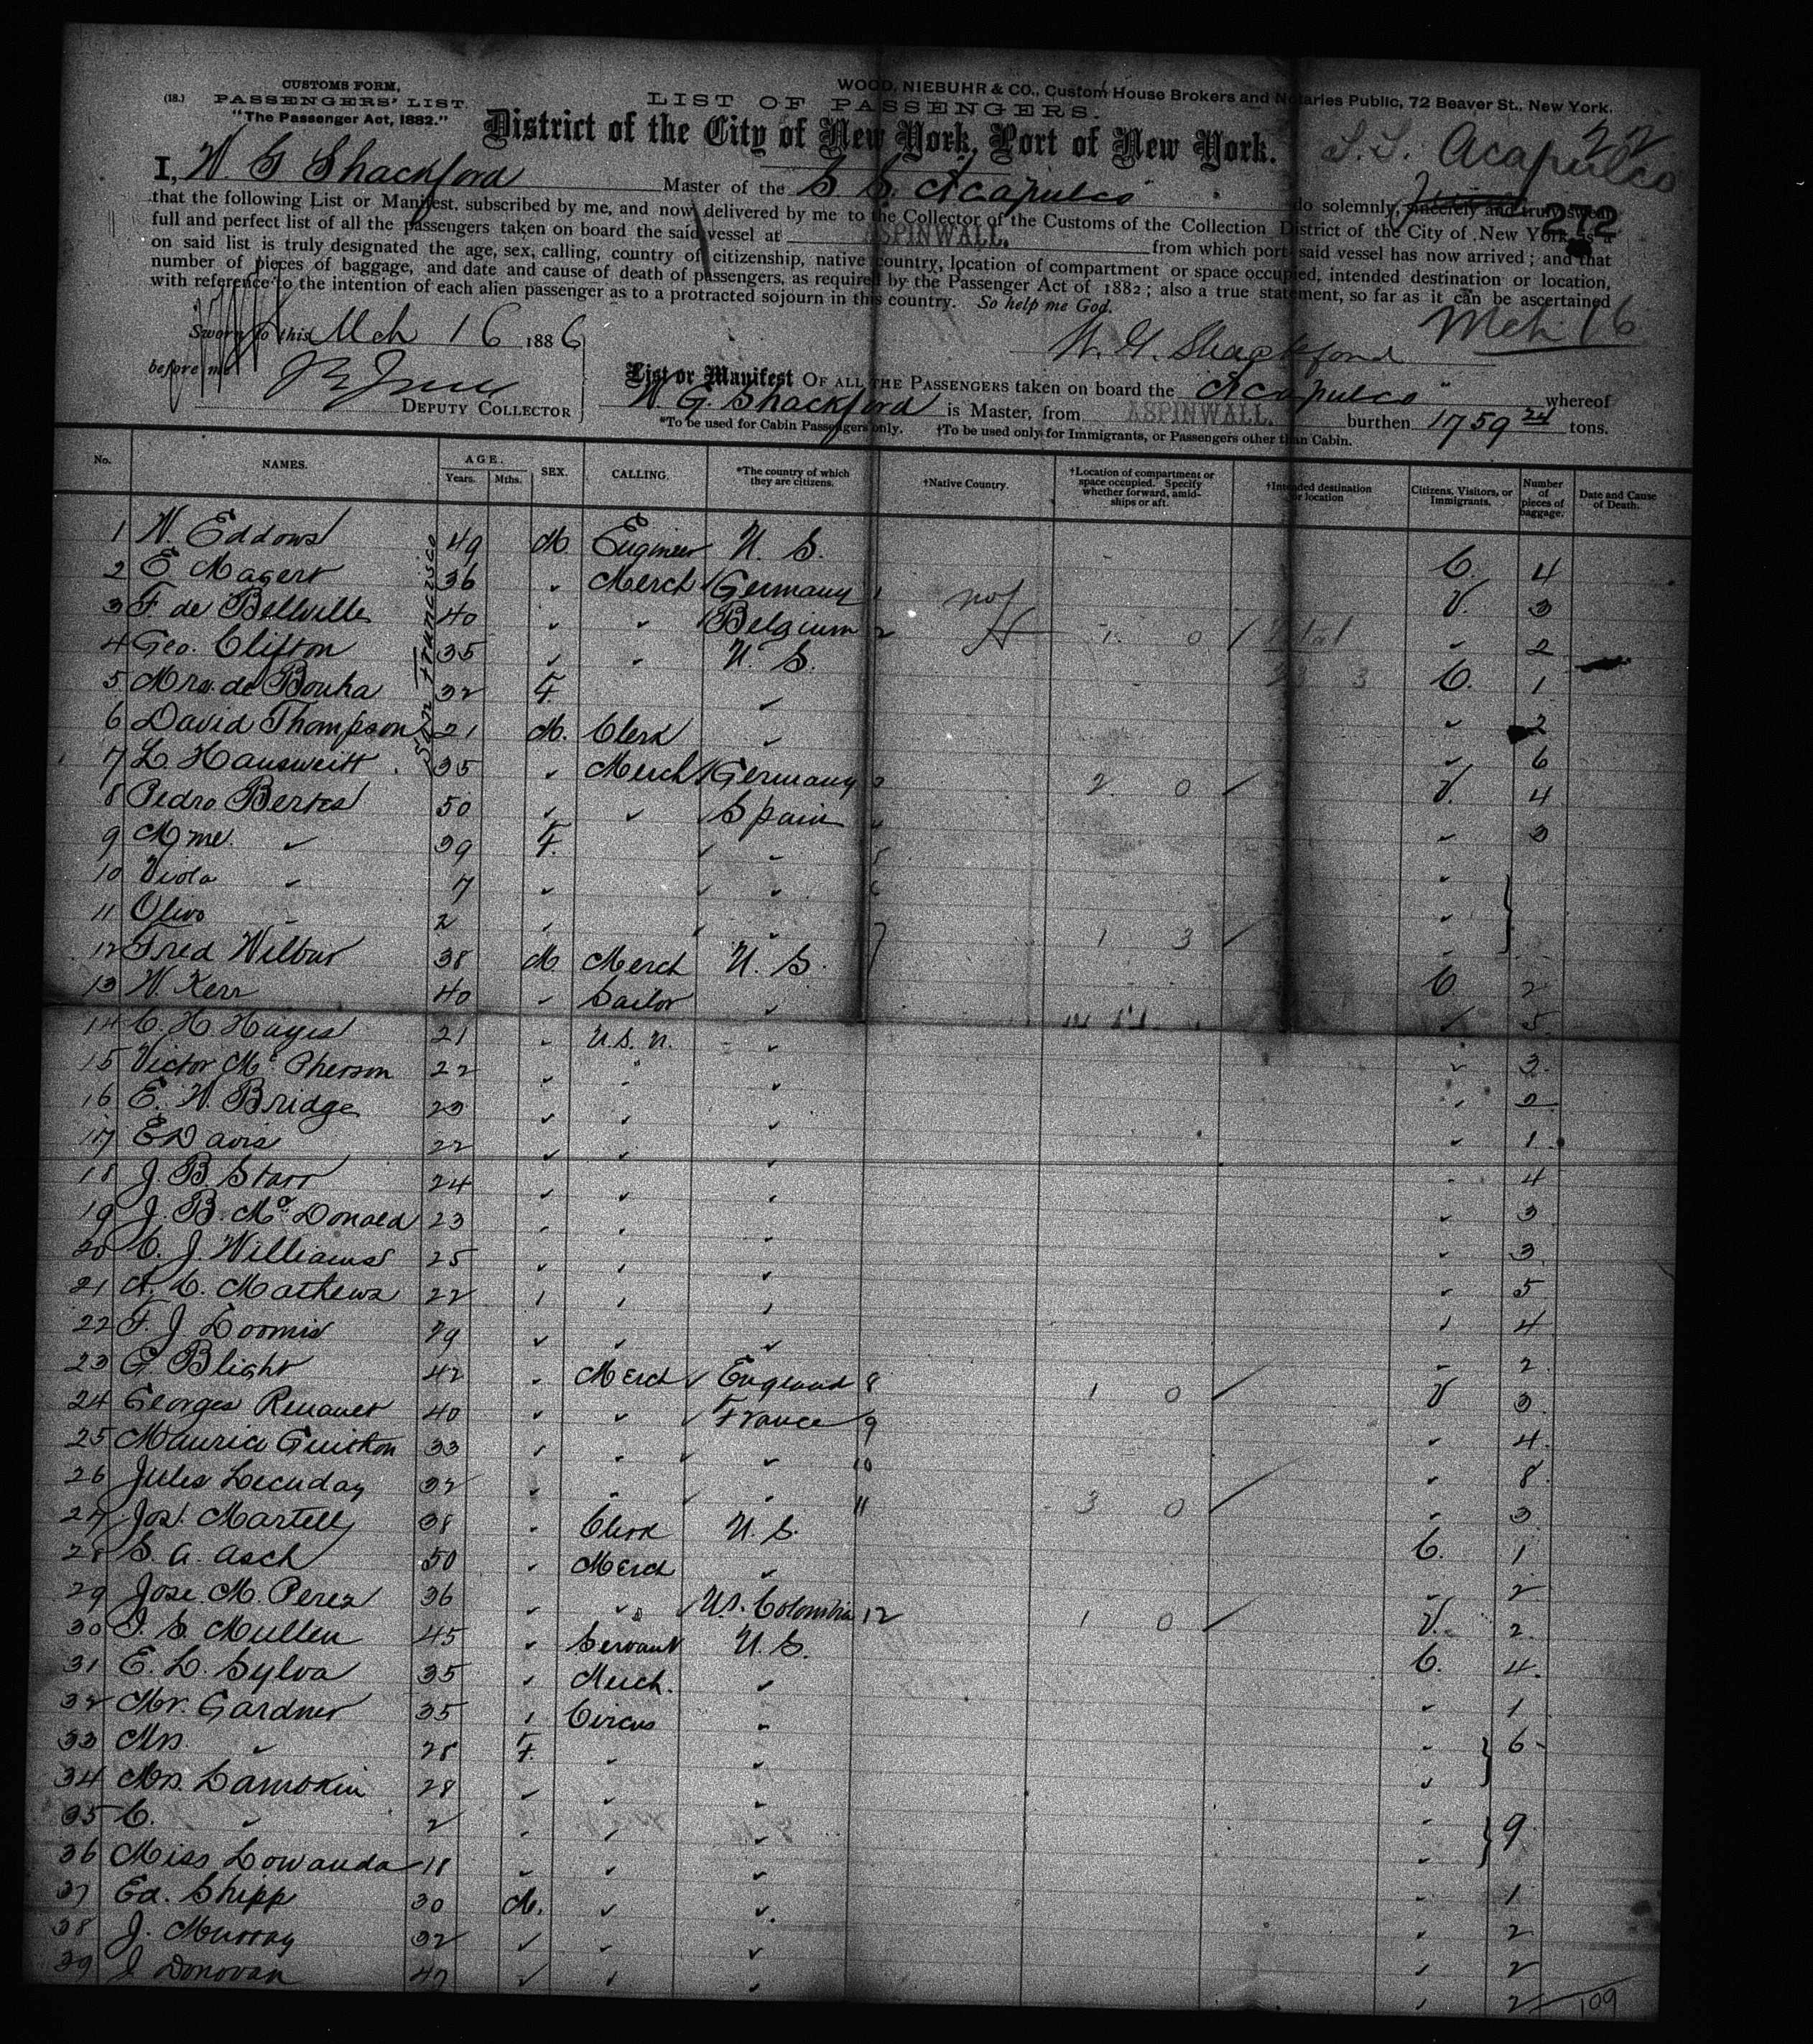 CUSTOMS FORM,
(18.) PASSENGERS' LIST.
"The Passenger Act, 1882."
WOOD, NIEBUHR & CO., Custom House Brokers and Notaries Public, 72 Beaver St., New York.
LIST OF PASSENGERS.
District of the City of New York, Port of New York.
S.S. Acapulco
22
I, W. G Shackford Master of the S S. Acapulco do solemnly, sincerely and truly swear
272
that the following List or Manifest, subscribed by me, and now delivered by me to the Collector of the Customs of the Collection District of the City of New York, is a
full and perfect list of all the passengers taken on board the said vessel at ASPINWALL. from which port said vessel has now arrived; and that
on said list is truly designated the age, sex, calling, country of citizenship, native country, location of compartment or space occupied, intended destination or location,
number of pieces of baggage, and date and cause of death of passengers, as required by the Passenger Act of 1882; also a true statement, so far as it can be ascertained
with reference to the intention of each alien passenger as to a protracted sojourn in this country. So help me God.
Mch 16
Sworn to this Mch 16 1886
W. G. Shackford
before me
DEPUTY COLLECTOR
List or Manifest OF ALL THE PASSENGERS taken on board the Acapulco whereof
W G. Shackford is Master, from ASPINWALL. burthen 1759 24 tons.
*To be used for Cabin Passengers only. †To be used only for Immigrants, or Passengers other than Cabin.
No. NAMES. AGE. Years. Mths. SEX. CALLING. *The country of which they are citizens. †Native Country. †Location of compartment or space occupied. Specify whether forward, amidships or aft. †Intended destination or location Citizens, Visitors, or Immigrants. Number of pieces of baggage. Date and Cause of Death.
San Francisco
1 W. Eddows 49 M Engineer U. S. C. 4
2 E Magert 36 " Merch Germany 1 not V. 3
3 F. de Bellville 40 " " Belgium 2 1 0 " 2
4 Geo. Clifton 35 " " U. S. C. 1
5 Mrs. de Bouha 32 F. " " 2
6 David Thompson 21 M. Clerk " " 6
7 L. Hausweitt 35 " Merch Germany 3 2 0 V. 4
8 Pedro Bertes 50 " " Spain 4 " 3
9 Mme. " 39 F. " 5 "
10 Viola " 7 " " 6 "
11 Olivo " 2 " " 7 1 3
12 Fred Wilbur 38 M Merch U. S. C 2
13 W. Kerr 40 " Sailor " " 5
14 C. H. Hayes 21 " U.S.N. " " 3
15 Victor McPherson 22 " " " " 2
16 E. W. Bridge 23 " " " " 1
17 E Davis 22 " " " " 4
18 J. B. Starr 24 " " " " 3
19 J. B. McDonald 23 " " " " 3
20 C. J. Williams 25 " " " " 5
21 A. C. Mathews 22 " " " " 4
22 F. J Loomis 29 " " " " 2
23 G. Blight 42 " Merch England 8 1 0 V 3
24 Georges Renauet 40 " " France 9 " 4
25 Maurice Guitton 33 " " " 10 " 8
26 Jules Lecuday 32 " " " 11 3 0 " 3
27 Jos. Martell 38 " Clerk U. S. C. 1
28 S. A. Asch 50 " Merch " " 2
29 Jose. M. Perez 36 " " U.S. Colombia 12 1 0 V. 2
30 J. S. Mullen 45 " Servant U. S. C. 4
31 E. L. Sylva 35 " Merch. " " 1
32 Mr. Gardner 35 " Circus " " 6
33 Mrs. " 28 F. " " "
34 Mrs. Lamokin 28 " " " " 9
35 C. " 2 " " " "
36 Miss Lowanda 18 " " " " 1
37 Ed. Shipp 30 M. " " " 2
38 J. Murray 32 " " " " 2
39 J Donovan 47 " " " " 2
109